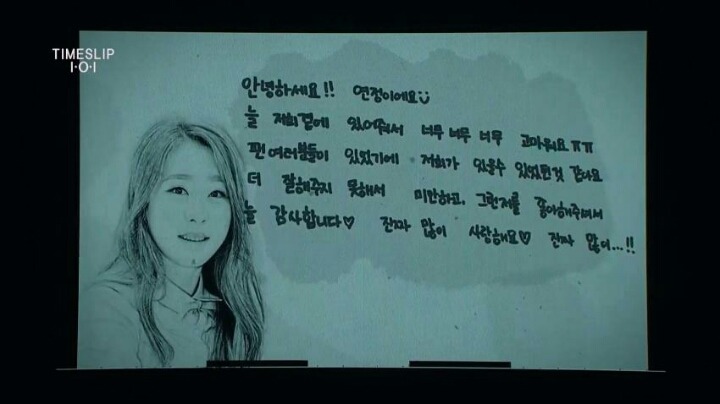 TIMESLIP
I·O·I
안녕하세요!! 연정이에요
늘 저희곁에 있어줘서 너무 너무 너무 고마워요 ㅠㅠ
팬 여러분들이 있었기에 저희가 있을수 있었던것 같아요
더 잘해주지 못해서 미안하고, 그런저를 좋아해주셔서
늘 감사합니다♡ 진짜 많이 사랑해요♡ 진짜 많이...!!